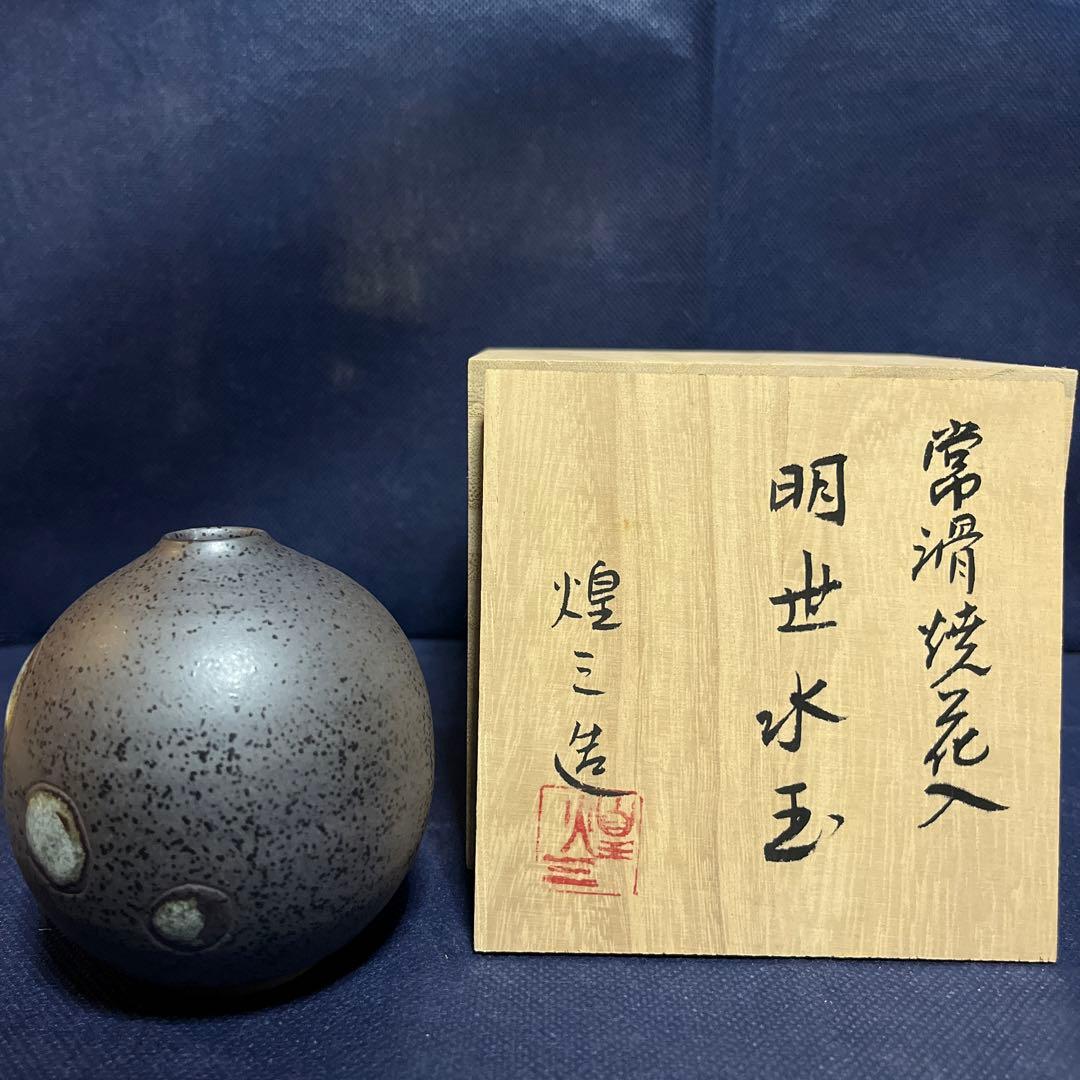 常滑焼花入
明世水玉
煌三造
煌三